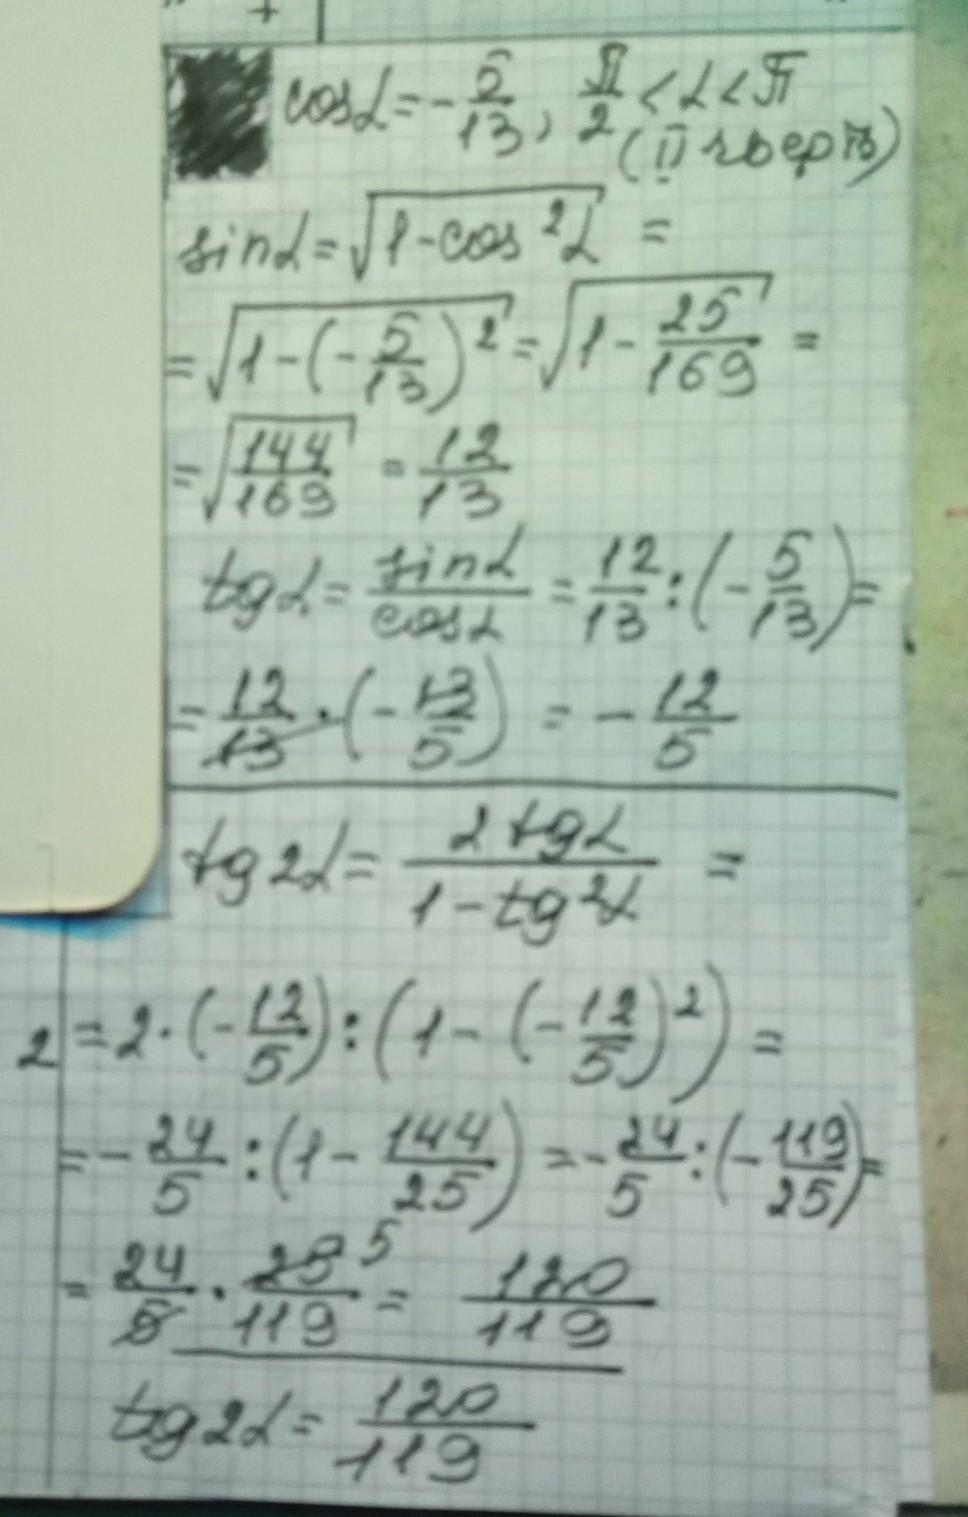 cosα = -5/13, π/2 < α < π
(II чверть)
sinα = √(1-cos²α) =
= √(1-(-5/13)²) = √(1 - 25/169) =
= √(144/169) = 12/13
tgα = sinα/cosα = 12/13 : (-5/13) =
= 12/13 · (-13/5) = -12/5
tg2α = 2tgα/(1-tg²α) =
2 = 2·(-12/5) : (1 - (-12/5)²) =
= -24/5 : (1 - 144/25) = -24/5 : (-119/25) =
= 24/5 · 25/119 5 = 120/119
tg2α = 120/119